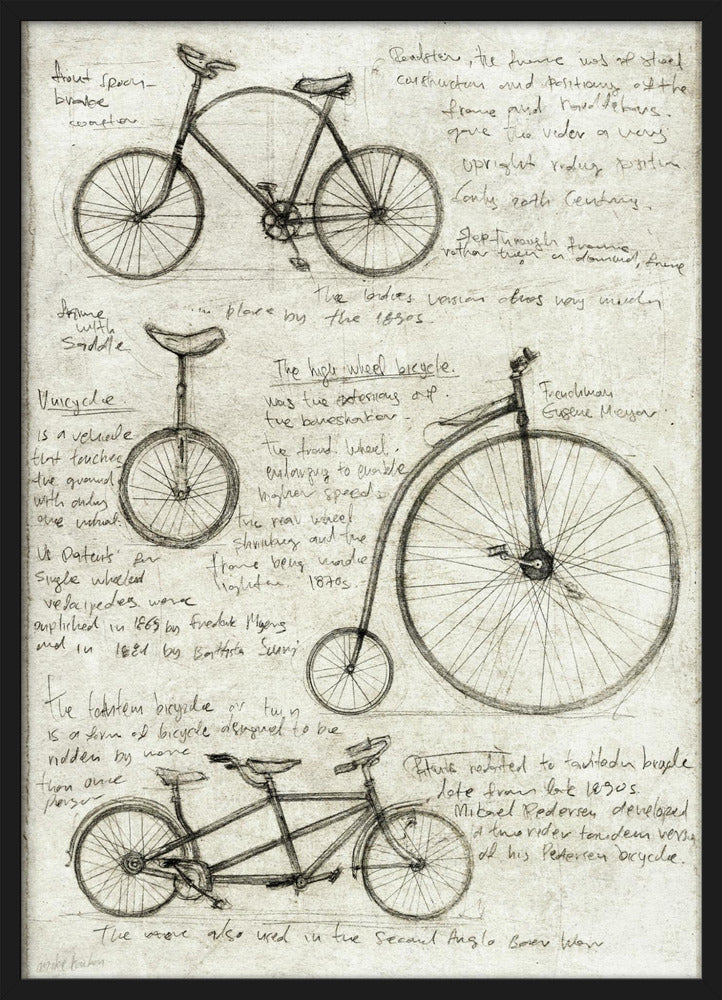 front spoon-
brake
Roadster, the frame was of steel
construction and positions of the
frame and handlebars.
gave the rider a very
upright riding position
Early 20th Century.
Step-through frame
rather than a diamond, frame
The ladies version was very much
in place by the 1890s.
frame
with
Saddle
Unicycle
is a vehicle
that touches
the ground
with only
one wheel.
US Patents for
single wheeled
velocipedes were
published in 1869 by Frederick Myers
and in 1881 by Battista Scuri
The high wheel bicycle.
was the extensions of
the boneshaker.
The front wheel.
enlarging to enable
higher speeds
the rear wheel
shrinking and the
frame being made
lighter. 1870s.
Frenchman
Eugene Meyer
The tandem bicycle or twin
is a form of bicycle designed to be
ridden by more
than one
person
related to tandem bicycle
date from late 1890s
Mikael Pedersen developed
a two rider tandem version
of his Pedersen bicycle.
The were also used in the Second Anglo Boer War